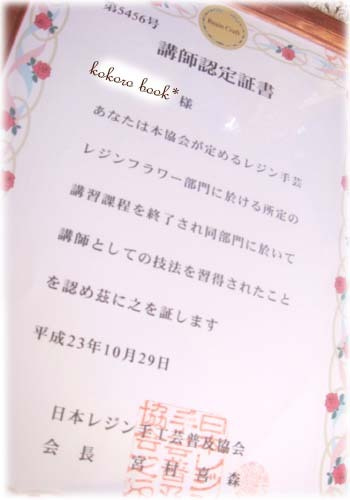 第5456号
Resin Craft
講師認定証書
kokoro book* 様
あなたは本協会が定めるレジン手芸
レジンフラワー部門に於ける所定の
講習課程を終了され同部門に於いて
講師としての技法を習得されたこと
を認め茲に之を証します
平成23年10月29日
日本レジン手工芸普及協会
会長 宮村喜森